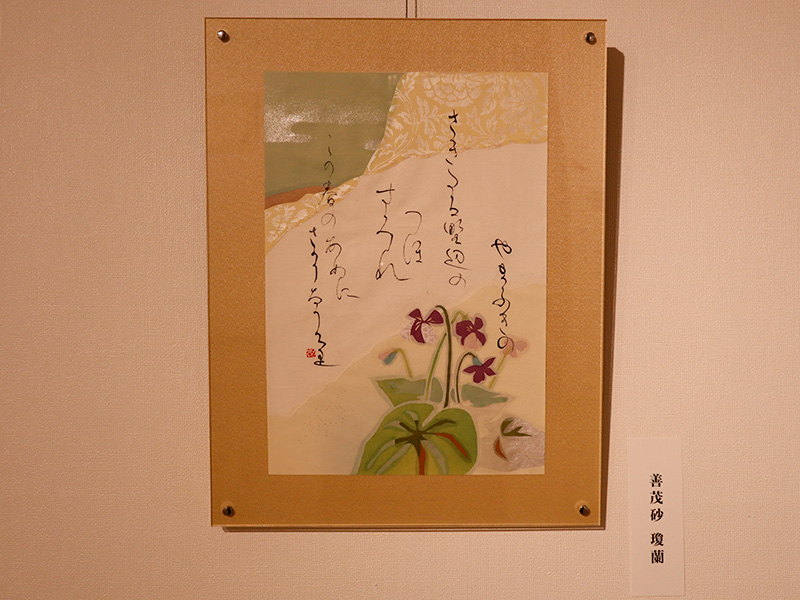 やまぶきの
さきたる野邊の
つほ
すみれ
この春のあめに
さかりなりけり
善茂砂 瓊蘭